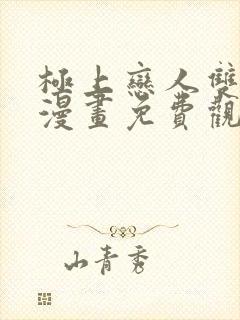 極上戀人雙
漫畫免費觀
山青秀